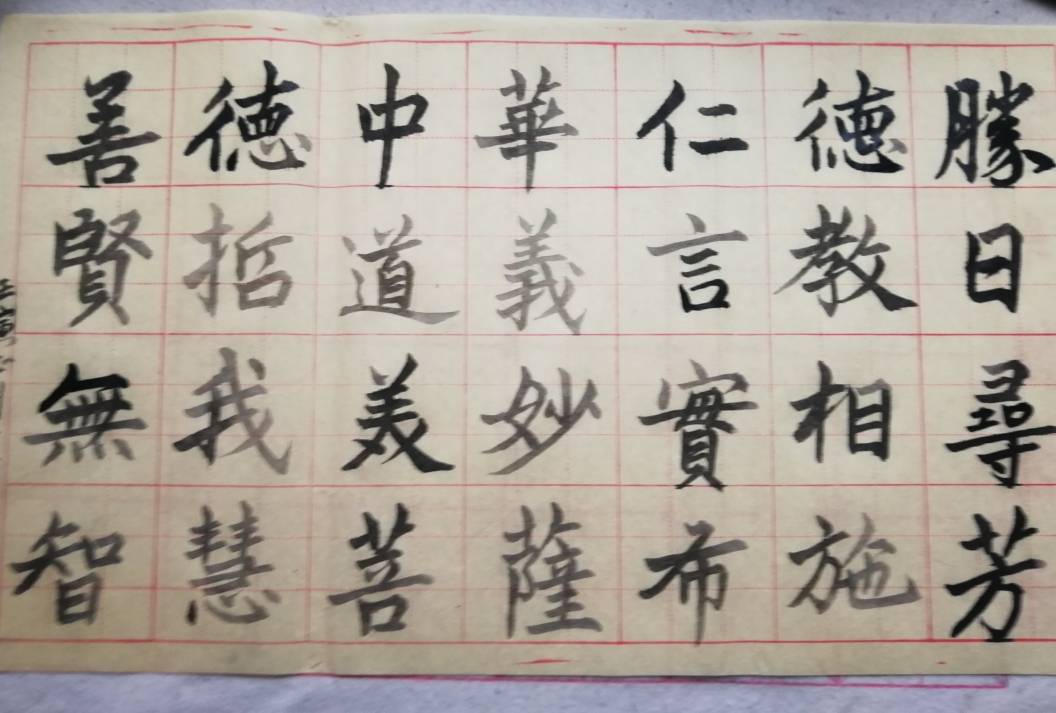 善德中華仁德勝
賢哲道義言教日
無我美妙實相尋
智慧菩薩布施芳